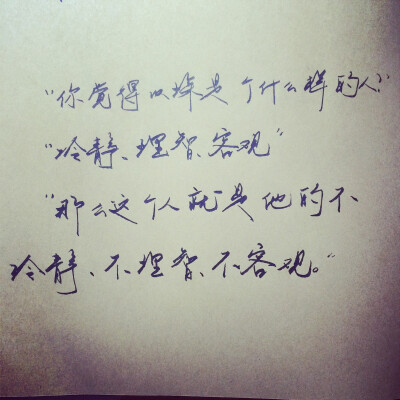 "你觉得以琛是个什么样的人?"
"冷静、理智、客观"
"那么这个人就是他的不
冷静、不理智、不客观。"